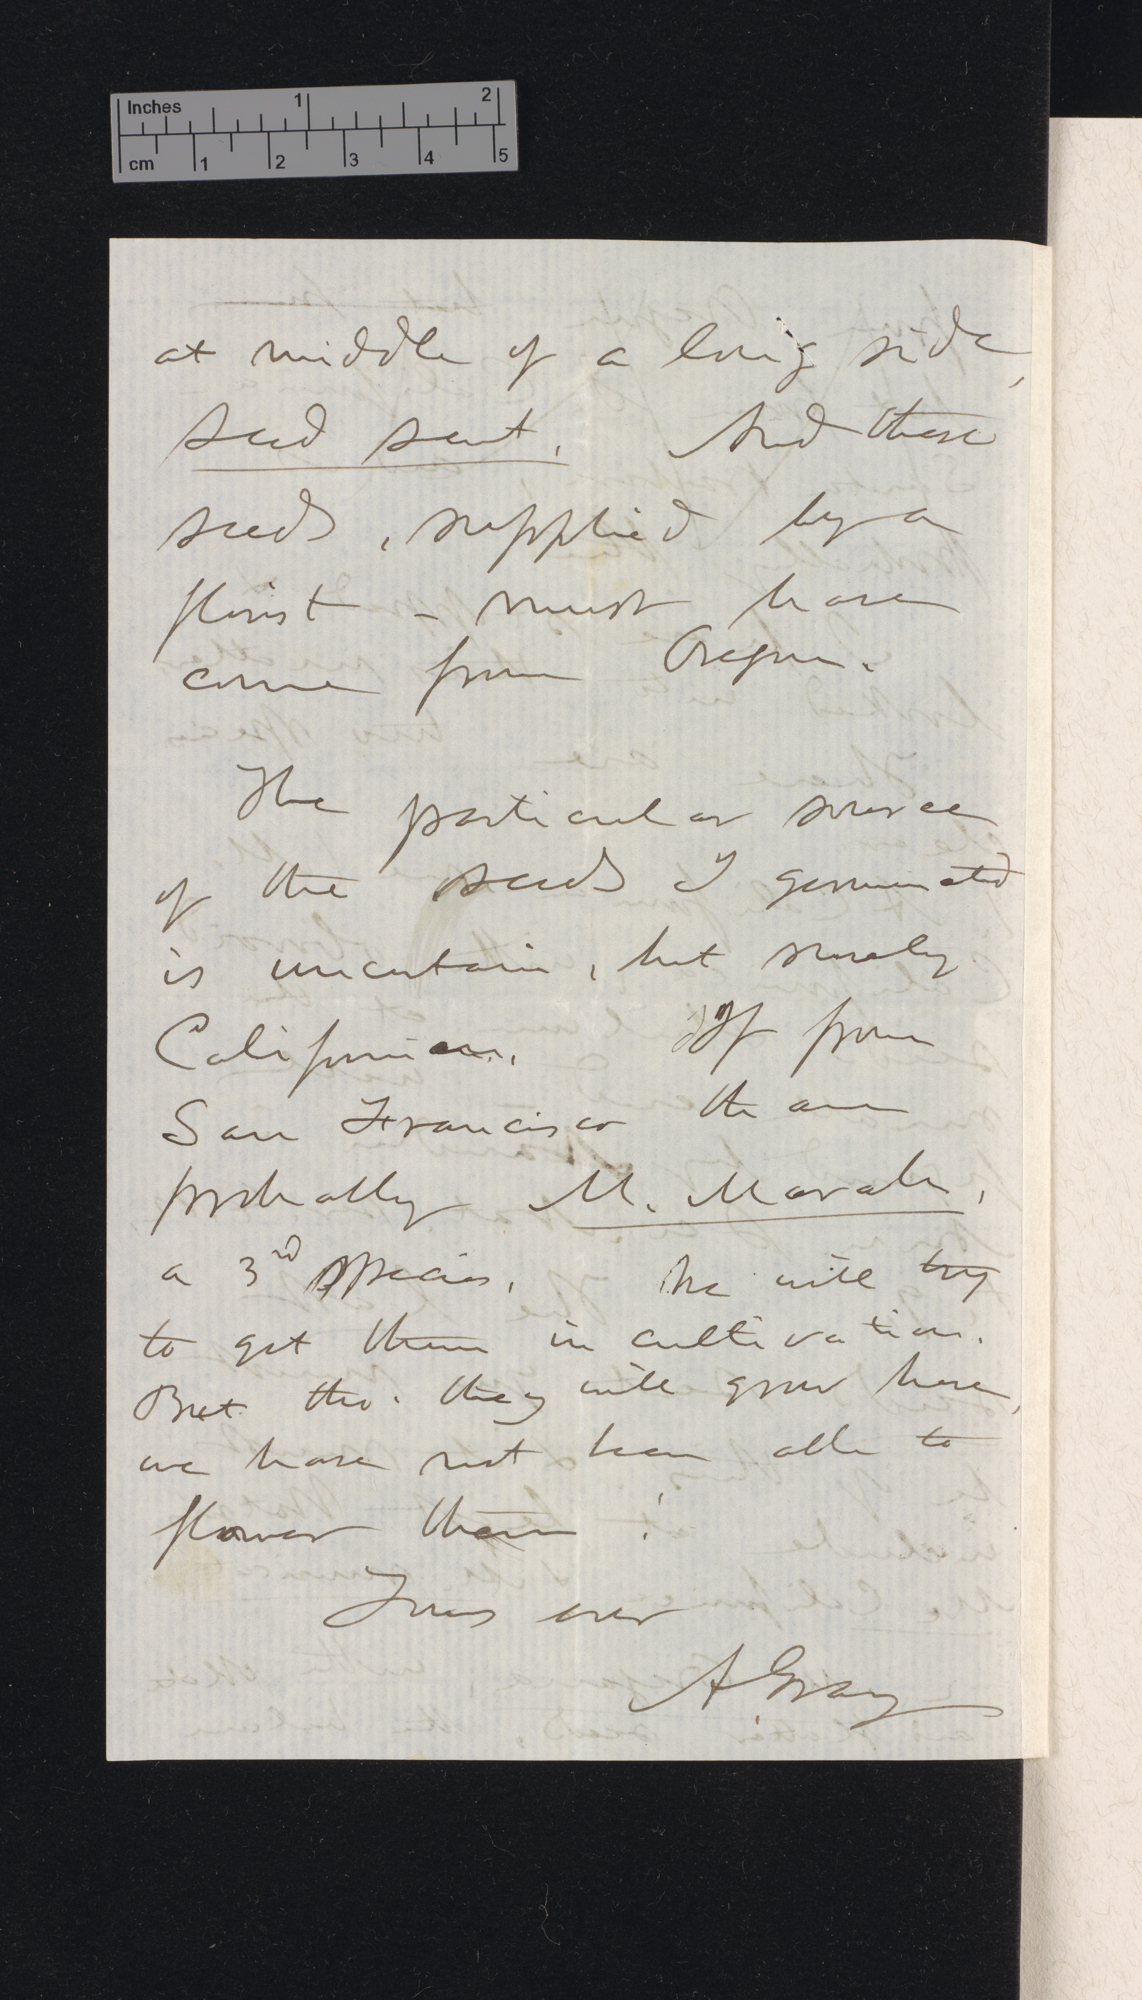 Inches 1 2
cm 1 2 3 4 5
at middle of a long side,
seed sent. And these
seeds, supplied by a
florist – must have
come from Oregon.
The particular source
of the seeds I germinated
is uncertain, but surely
Californian. If from
San Francisco then
probably M. Marah,
a 3rd species. We will try
to get them in cultivation.
But tho. they will grow here,
we have not been able to
flower them!
Yours ever
A Gray